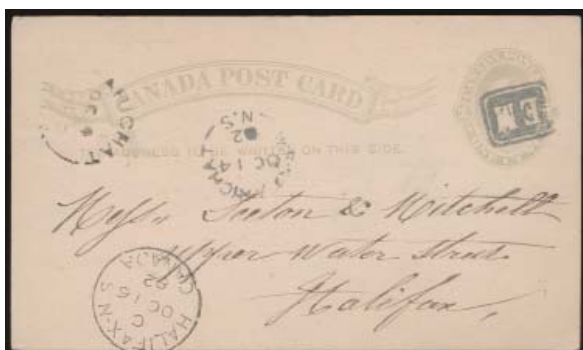 CANADA POST CARD
THE ADDRESS TO BE WRITTEN ON THIS SIDE.
ARICHAT
OC
ARICHAT
OC 14
92
N.S.
Messrs Seeton & Mitchell
Upper Water Street
Halifax,
HALIFAX N.S
C
OC 15
92
CANADA